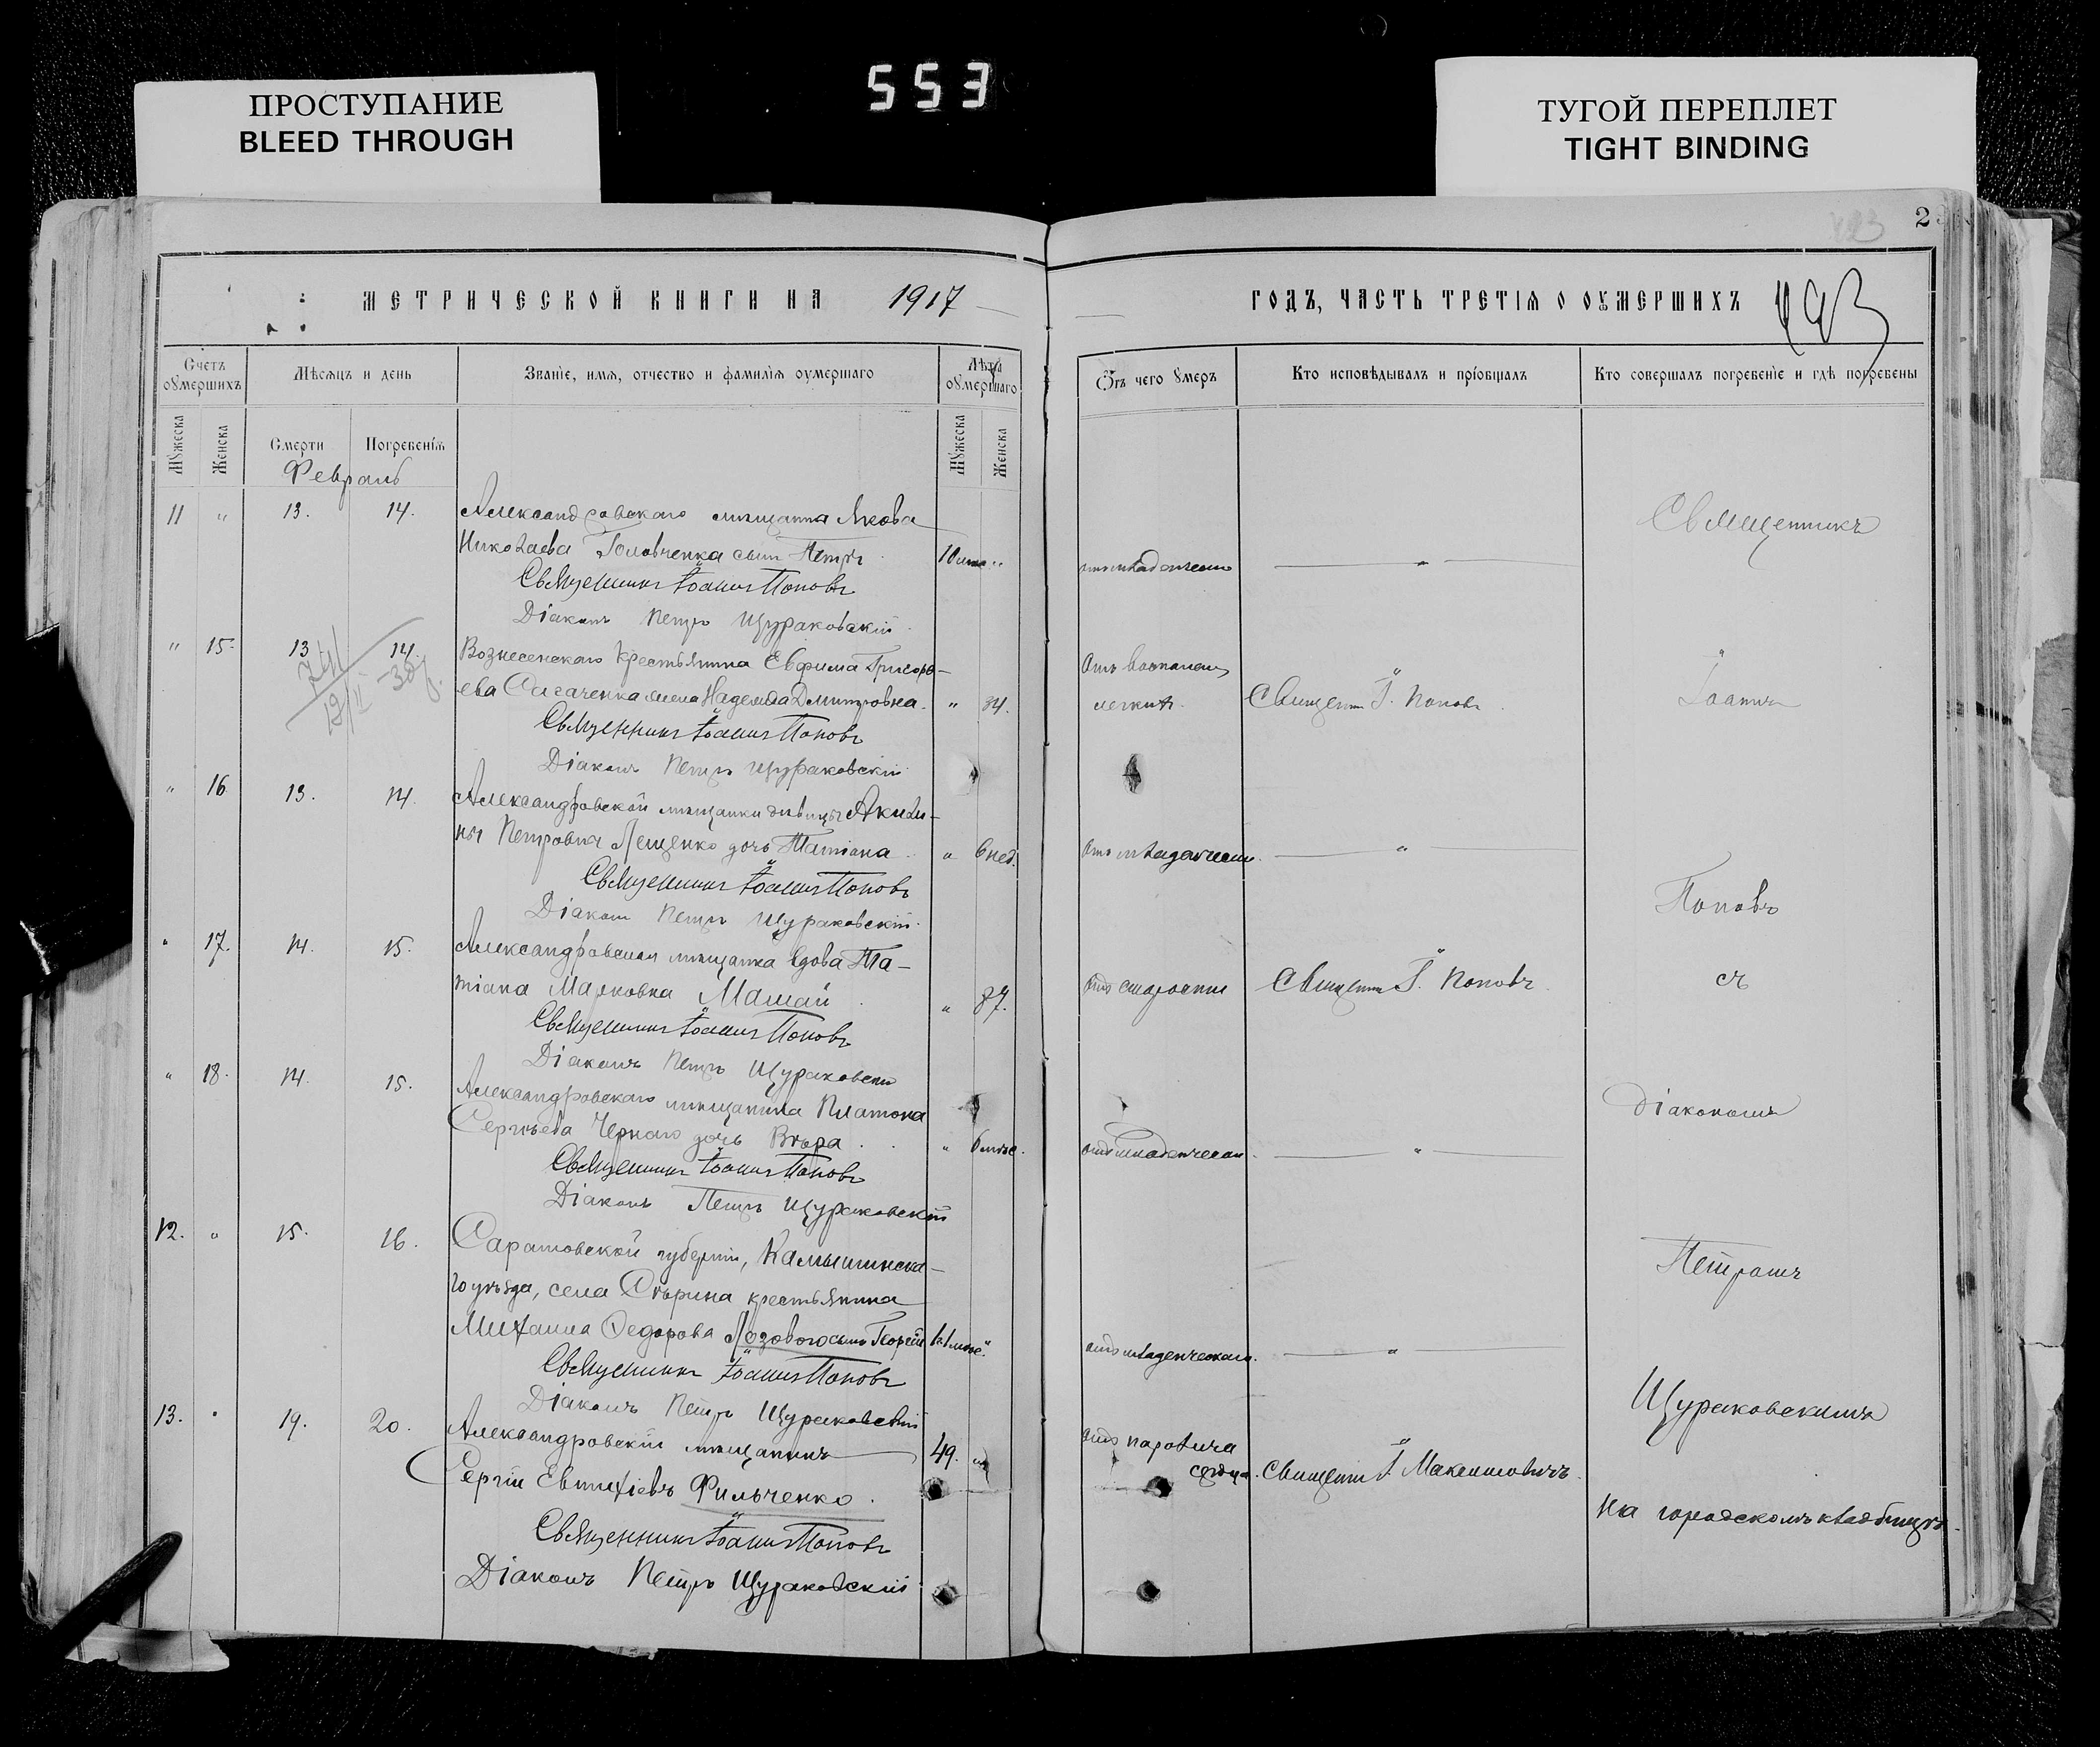 553
ПРОСТУПАНИЕ
BLEED THROUGH
ТУГОЙ ПЕРЕПЛЕТ
TIGHT BINDING
2
МЕТРИЧЕСКОЙ КНИГИ НА 1917
ГОДЪ, ЧАСТЬ ТРЕТІѦ О ОУМЕРШИХЪ
493
Счетъ оумершихъ
Мѣсяцъ и день
Званіе, имя, отчество и фамилія оумершаго
Лѣта оумершаго
Отъ чего умеръ
Кто исповѣдывалъ и пріобщалъ
Кто совершалъ погребеніе и гдѣ погребены
Мужеска
Женска
Смерти
Погребенія
Мужеска
Женска
Февраль
11 " 13. 14. Александровскаго мѣщанина Якова
Николаева Головченка сынъ Петръ
Священникъ Іоаннъ Поповъ
Діаконъ Петръ Щураковскій
Священникъ
" 15. 13 14. Вознесенскаго крестьянина Евфима Григорь-
ева Сагаченка жена Надежда Дмитровна. " 34.
Отъ воспален.
легкихъ. Священ. І. Поповъ.
Священникъ Іоаннъ Поповъ
Діаконъ Петръ Щураковскій
Іоаннъ
" 16 13. 14. Александровской мѣщанки дѣвицы Акили-
ны Петровны Лещенко дочь Татіана " 6 нед. отъ младенческ.
Священникъ Іоаннъ Поповъ
Діаконъ Петръ Щураковскій.
Поповъ
" 17. 14. 15. Александровская мѣщанка вдова Та-
тіана Марковна Мамай " 87. отъ старости Священ. І. Поповъ.
съ
Священникъ Іоаннъ Поповъ
Діаконъ Петръ Щураковскій
" 18. 14. 15. Александровскаго мѣщанина Платона
Сергѣева Чернаго дочь Вѣра " 6 мѣс. отъ младенческ.
Священникъ Іоаннъ Поповъ
Діаконъ Петръ Щураковскій
Діакономъ
12. " 15. 16. Саратовской губерніи, Камышинска-
го уѣзда, села крестьянина
Михаила Федорова Лозового сынъ Георгій отъ младенческаго.
Священникъ Іоаннъ Поповъ
Діаконъ Петръ Щураковскій
Петромъ
13. " 19. 20. Александровскій мѣщанинъ 49.
Сергій Евтихіевъ Фильченко.
отъ паралича
сердца. Священ. І. Максимовичъ.
Щураковскимъ
на городскомъ кладбищѣ.
Священникъ Іоаннъ Поповъ
Діаконъ Петръ Щураковскій